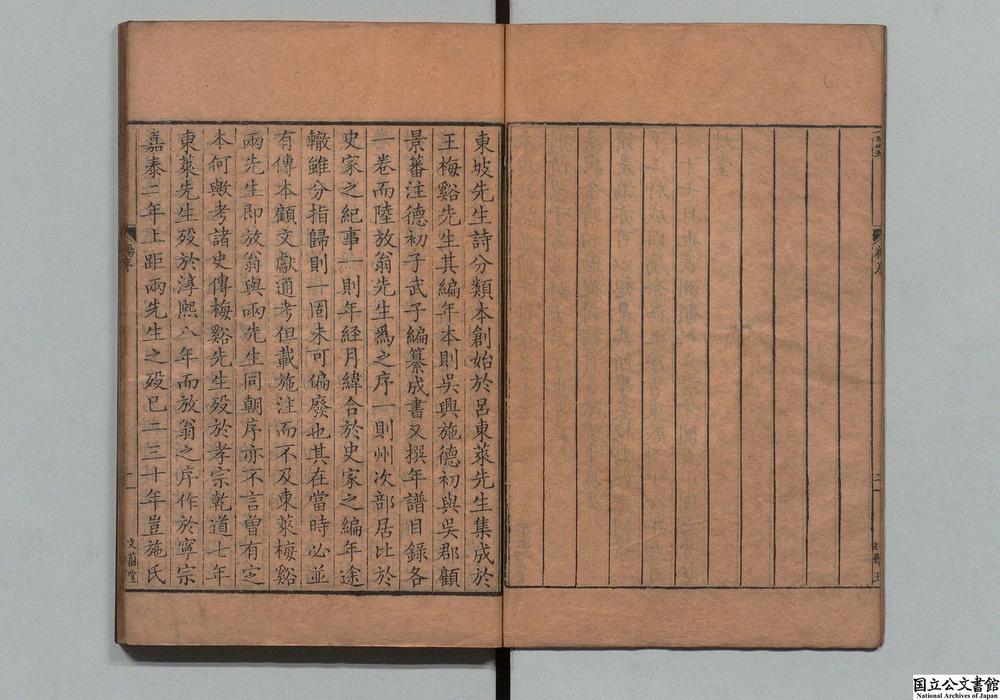 東坡先生詩分類本創始於呂東萊先生集成於
王梅谿先生其編年本則吳興施德初與吳郡顧
景蕃注德初子武子編纂成書又撰年譜目錄各
一卷而陸放翁先生爲之序一則州次部居比於
史家之紀事一則年經月緯合於史家之編年途
轍雖分指歸則一固未可偏廢也其在當時必並
有傳本顧文獻通考但載施注而不及東萊梅谿
兩先生即放翁與兩先生同朝序亦不言曾有定
本何歟考諸史傳梅谿先生歿於孝宗乾道七年
東萊先生歿於淳熙八年而放翁之序作於寧宗
嘉泰二年上距兩先生之歿已二三十年豈施氏
文蔚堂
国立公文書館
National Archives of Japan